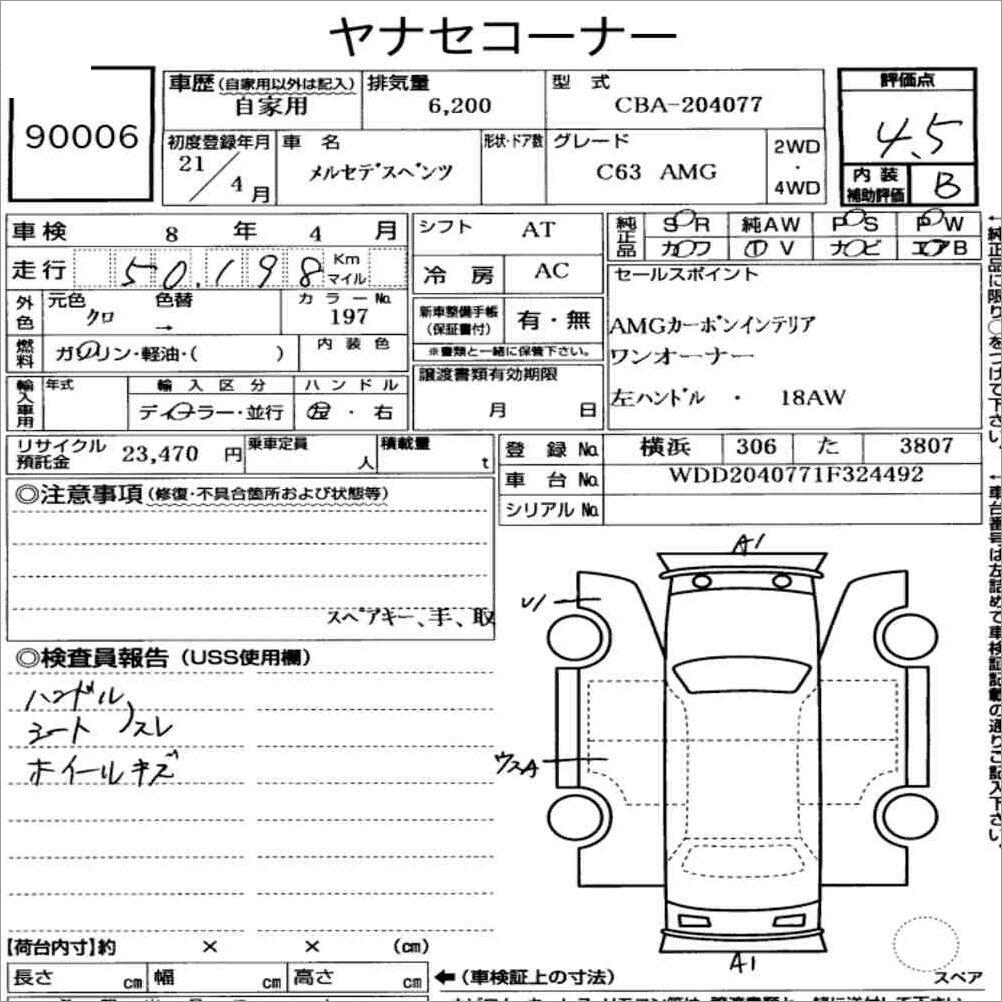 ヤナセコーナー
90006
車歴(自家用以外は記入) 排気量 型 式 評価点
自家用 6,200 CBA-204077 4.5
初度登録年月 車 名 形状・ドア数 グレード 2WD・4WD
21/4月 メルセデスベンツ C63 AMG
内装補助評価 B
車検 8 年 4 月 シフト AT 純正品 SR 純AW PS PW
カワ TV ナビ エアB
走行 50,198 Km マイル 冷 房 AC
セールスポイント
外色 元色 色替 カラーNo.
クロ → 197
新車整備手帳(保証書付) 有・無
AMGカーボンインテリア
燃料 ガソリン・軽油・( ) 内 装 色
※書類と一緒に保管下さい。
ワンオーナー
輸入車用 年式 輸 入 区 分 ハ ン ド ル
ディーラー・並行 左・右
譲渡書類有効期限
月 日
左ハンドル ・ 18AW
リサイクル預託金 23,470 円 乗車定員 人 積載量 t
登 録 No. 横浜 306 た 3807
車 台 No. WDD2040771F324492
シリアル No.
◎注意事項(修復・不具合箇所および状態等)
スペアキー、手、取
◎検査員報告(USS使用欄)
ハンドル
シート スレ
ホイールキズ
A1
U1
ウスA
A1
スペア
【荷台内寸】約 × × (cm)
長さ cm 幅 cm 高さ cm ←(車検証上の寸法)
←純正品に限り○をつけて下さい。
←車台番号は左詰めて車検証記載の通りご記入下さい。